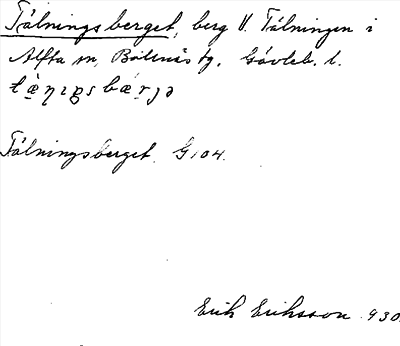 Tälningsberget, berg V. Tälningen i
Alfta sn, Bollnäs tg. Gävleb. l.
Tälningsberget G 104.
Erik Eriksson 930.